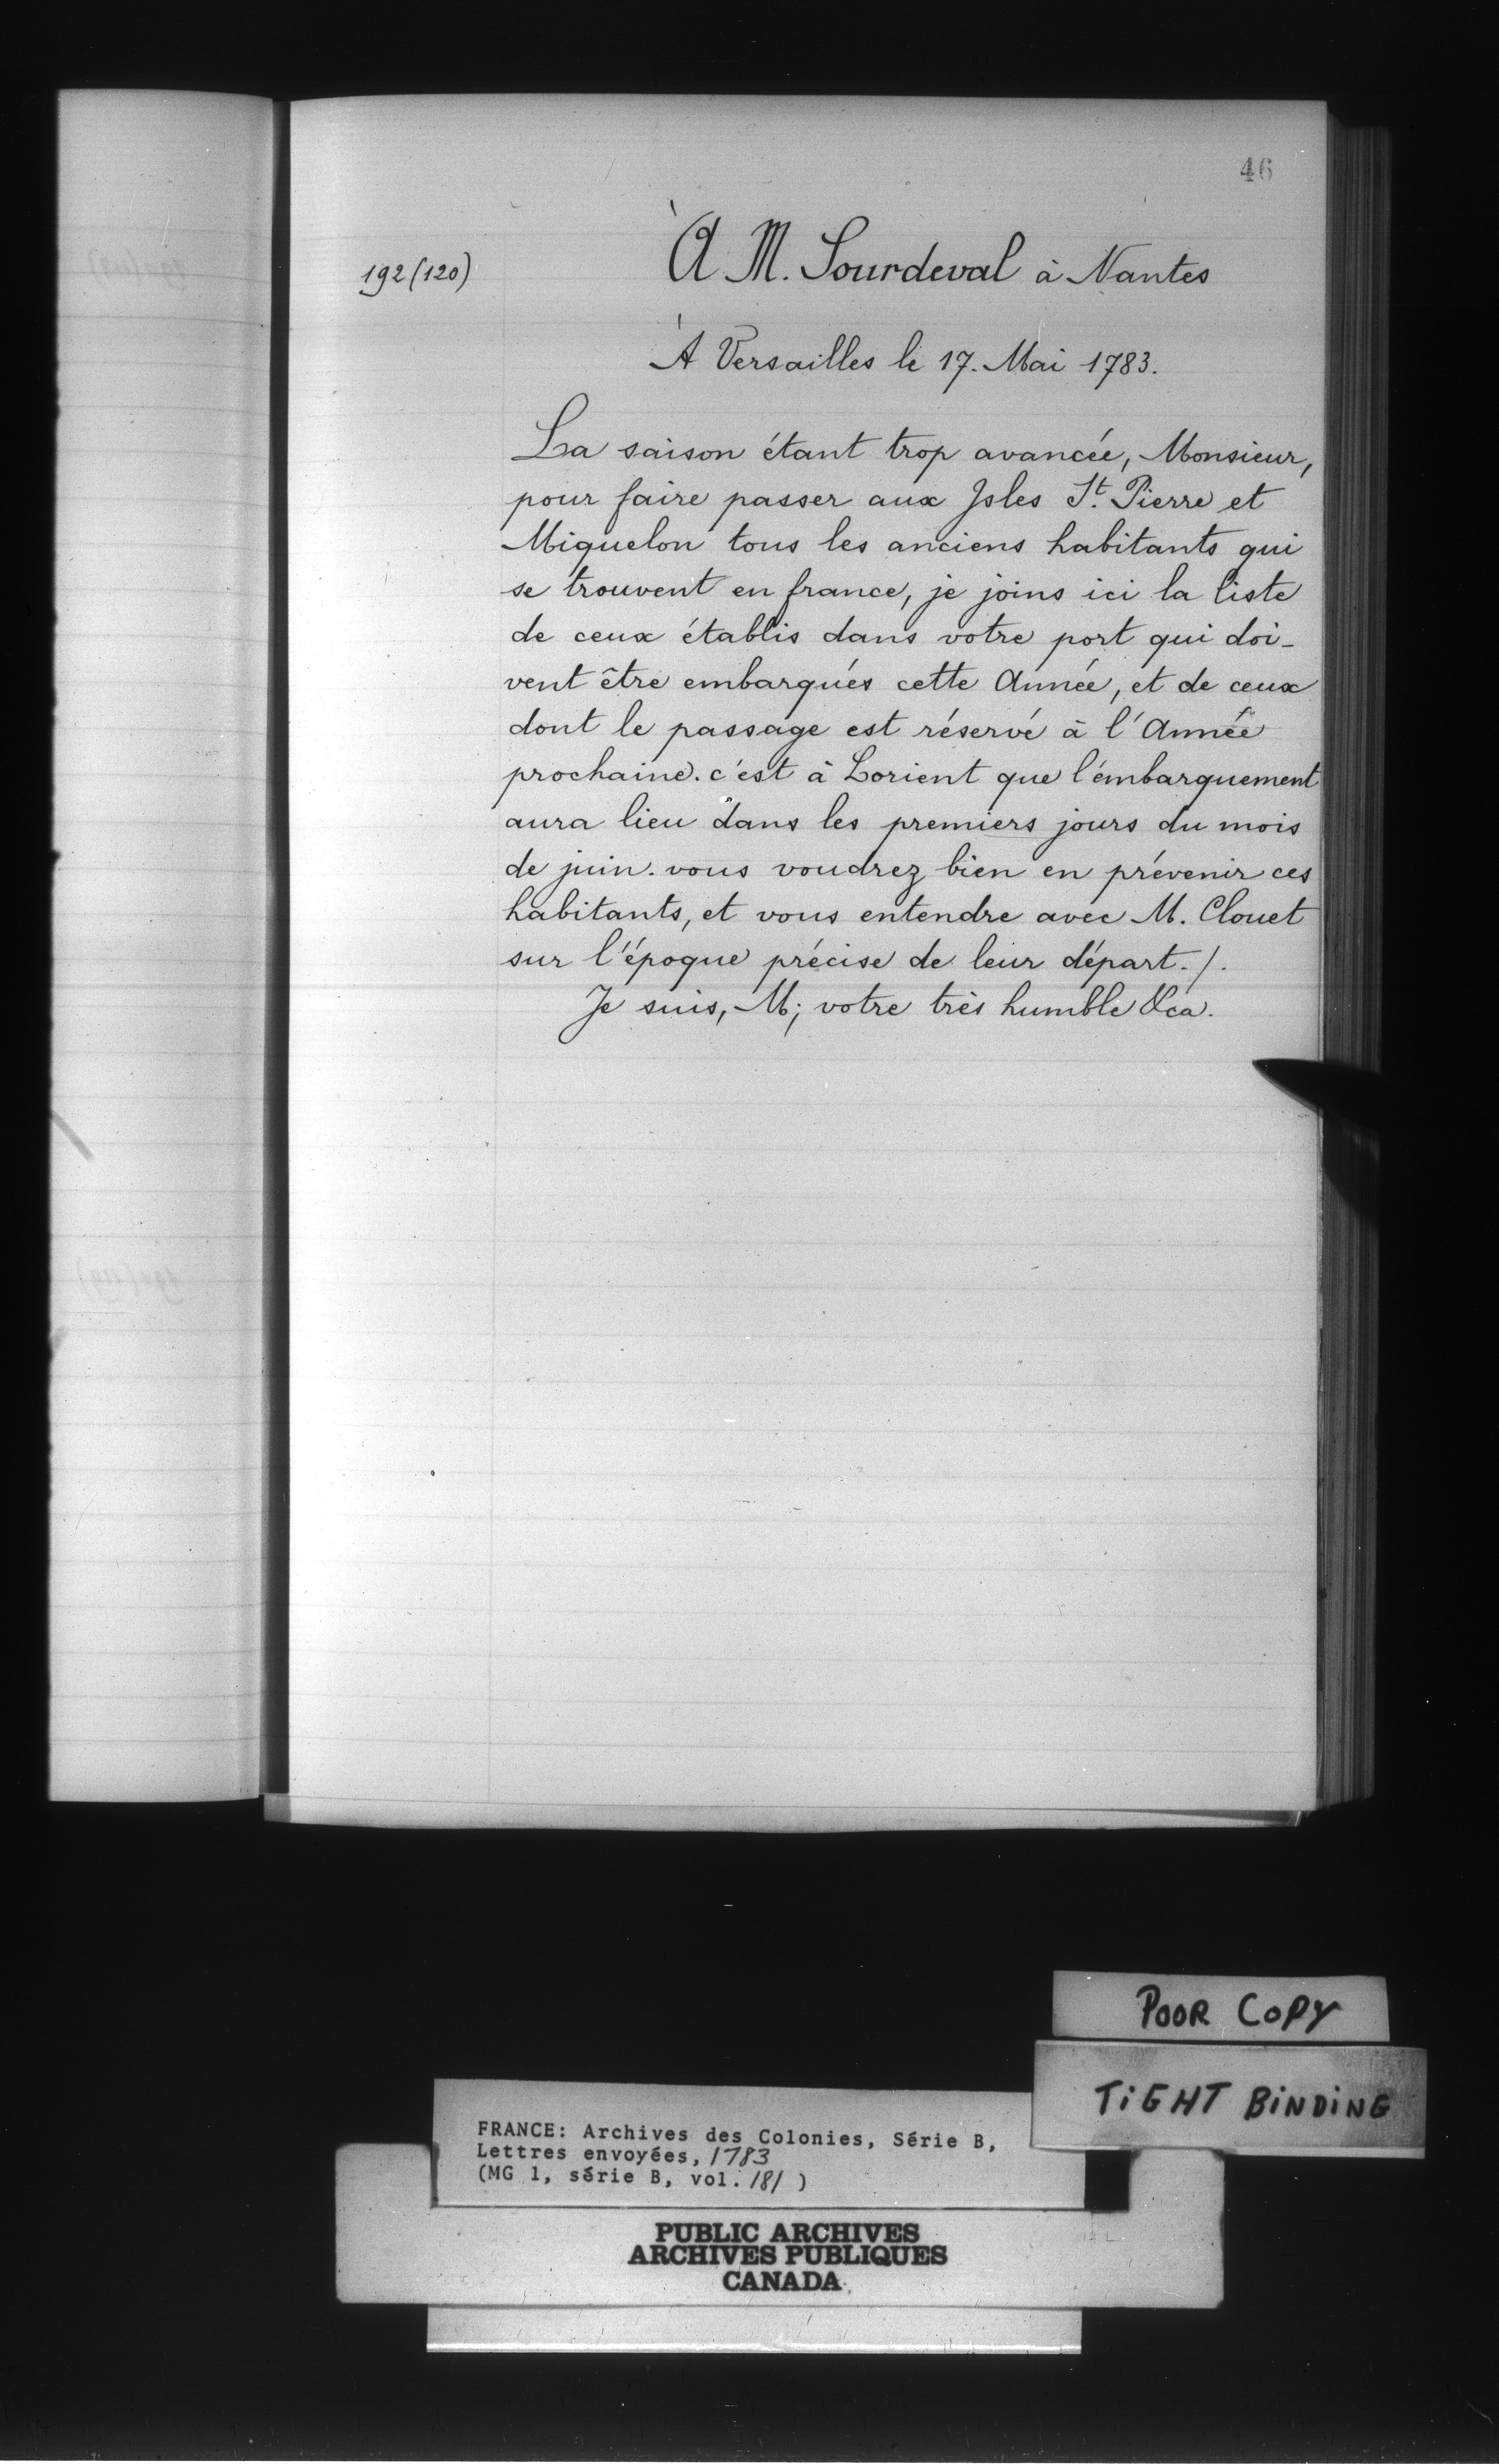 46
192 (120)
À M. Sourdeval à Nantes
À Versailles le 17. Mai 1783.
La saison étant trop avancée, Monsieur,
pour faire passer aux Isles St. Pierre et
Miquelon tous les anciens habitants qui
se trouvent en france, je joins ici la liste
de ceux établis dans votre port qui doi-
vent être embarqués cette Année, et de ceux
dont le passage est réservé à l'Année
prochaine. c'est à Lorient que l'émbarquement
aura lieu dans les premiers jours du mois
de juin. vous voudrez bien en prévenir ces
habitants, et vous entendre avec M. Clouet
sur l'époque précise de leur départ. /.
Je suis, M; votre très humble &ca.
POOR COPY
TIGHT BINDING
FRANCE: Archives des Colonies, Série B,
Lettres envoyées, 1783
(MG 1, série B, vol. 181 )
PUBLIC ARCHIVES
ARCHIVES PUBLIQUES
CANADA